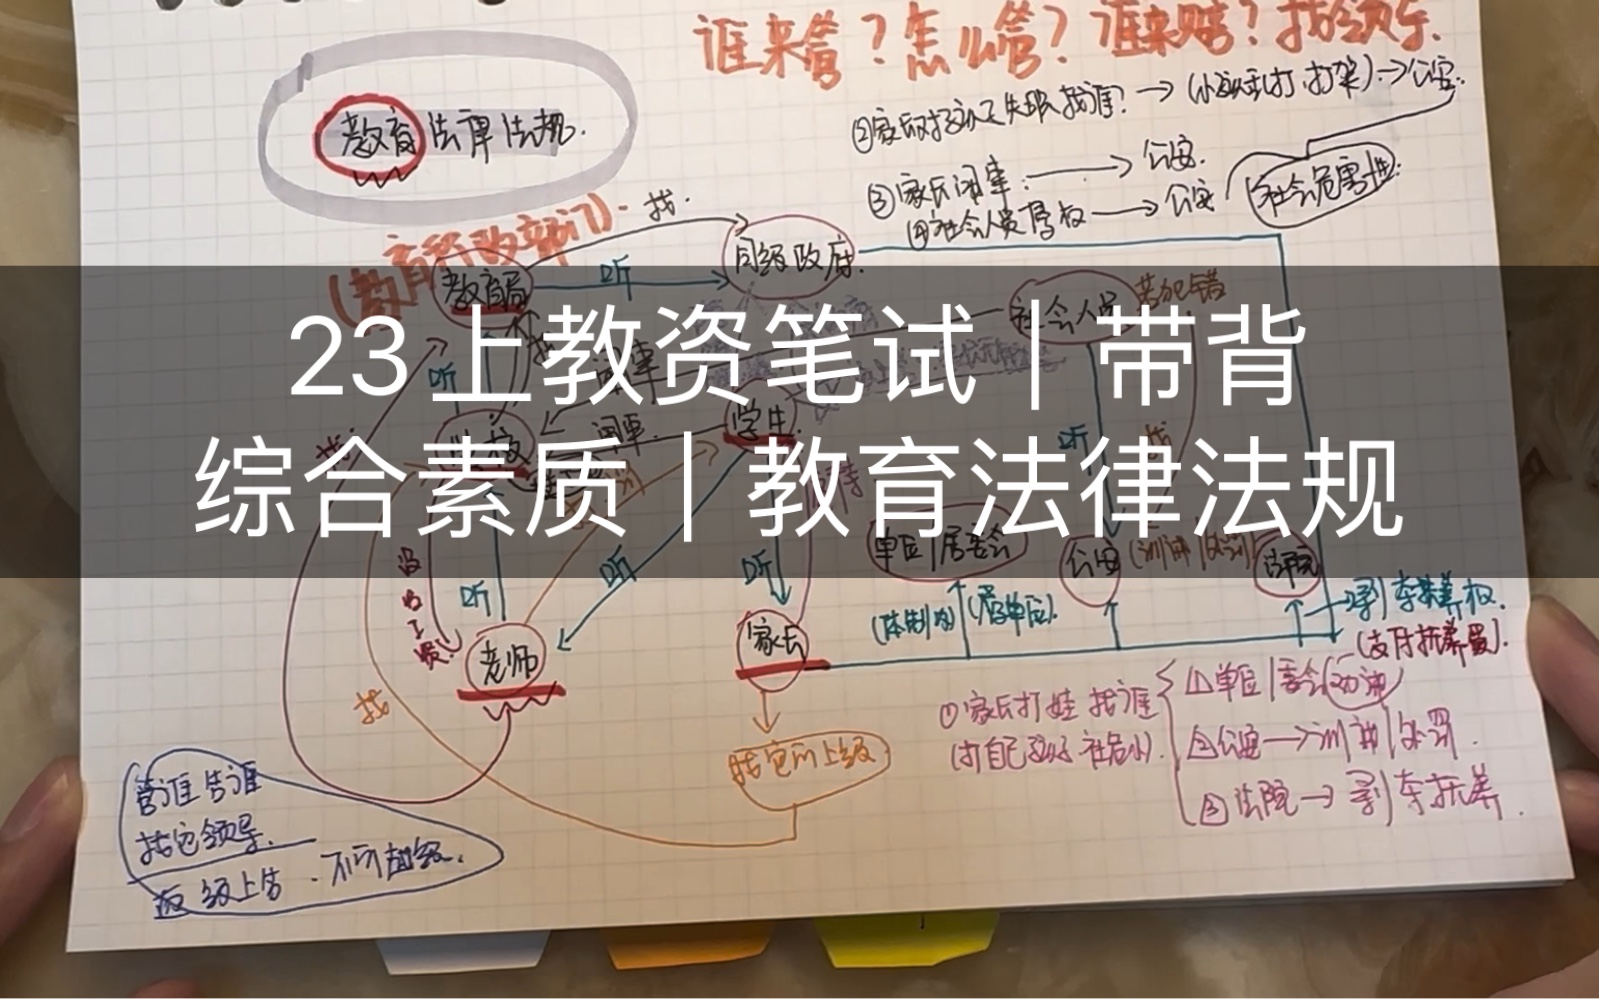 谁来管？怎么管？谁来赔？找领导.
教育法律法规.
(小孩乱打、打架)→公安.
③家长闹事:→公安.
④社会人员辱校→公安
社会危害性:
(教育行政部门)·找.
教育局
听
同级政府.
社会人员
若犯错
23上教资笔试｜带背
综合素质｜教育法律法规
听
闹事
学生.
学校
找
听
找
单位|居委会
公安
(训诫|处罚)
法院
听
听
听
老师
家长
(体制内)
(居单位).
→剥夺抚养权.
(支付抚养费).
找
找它的上级
①家长打娃 找谁
(打自己孩子 社危小).
①单位|居委会(劝诫)
②公安→训诫|处罚.
③法院→剥夺抚养.
管谁告谁
找它领导.
逐级上告.不可越级.